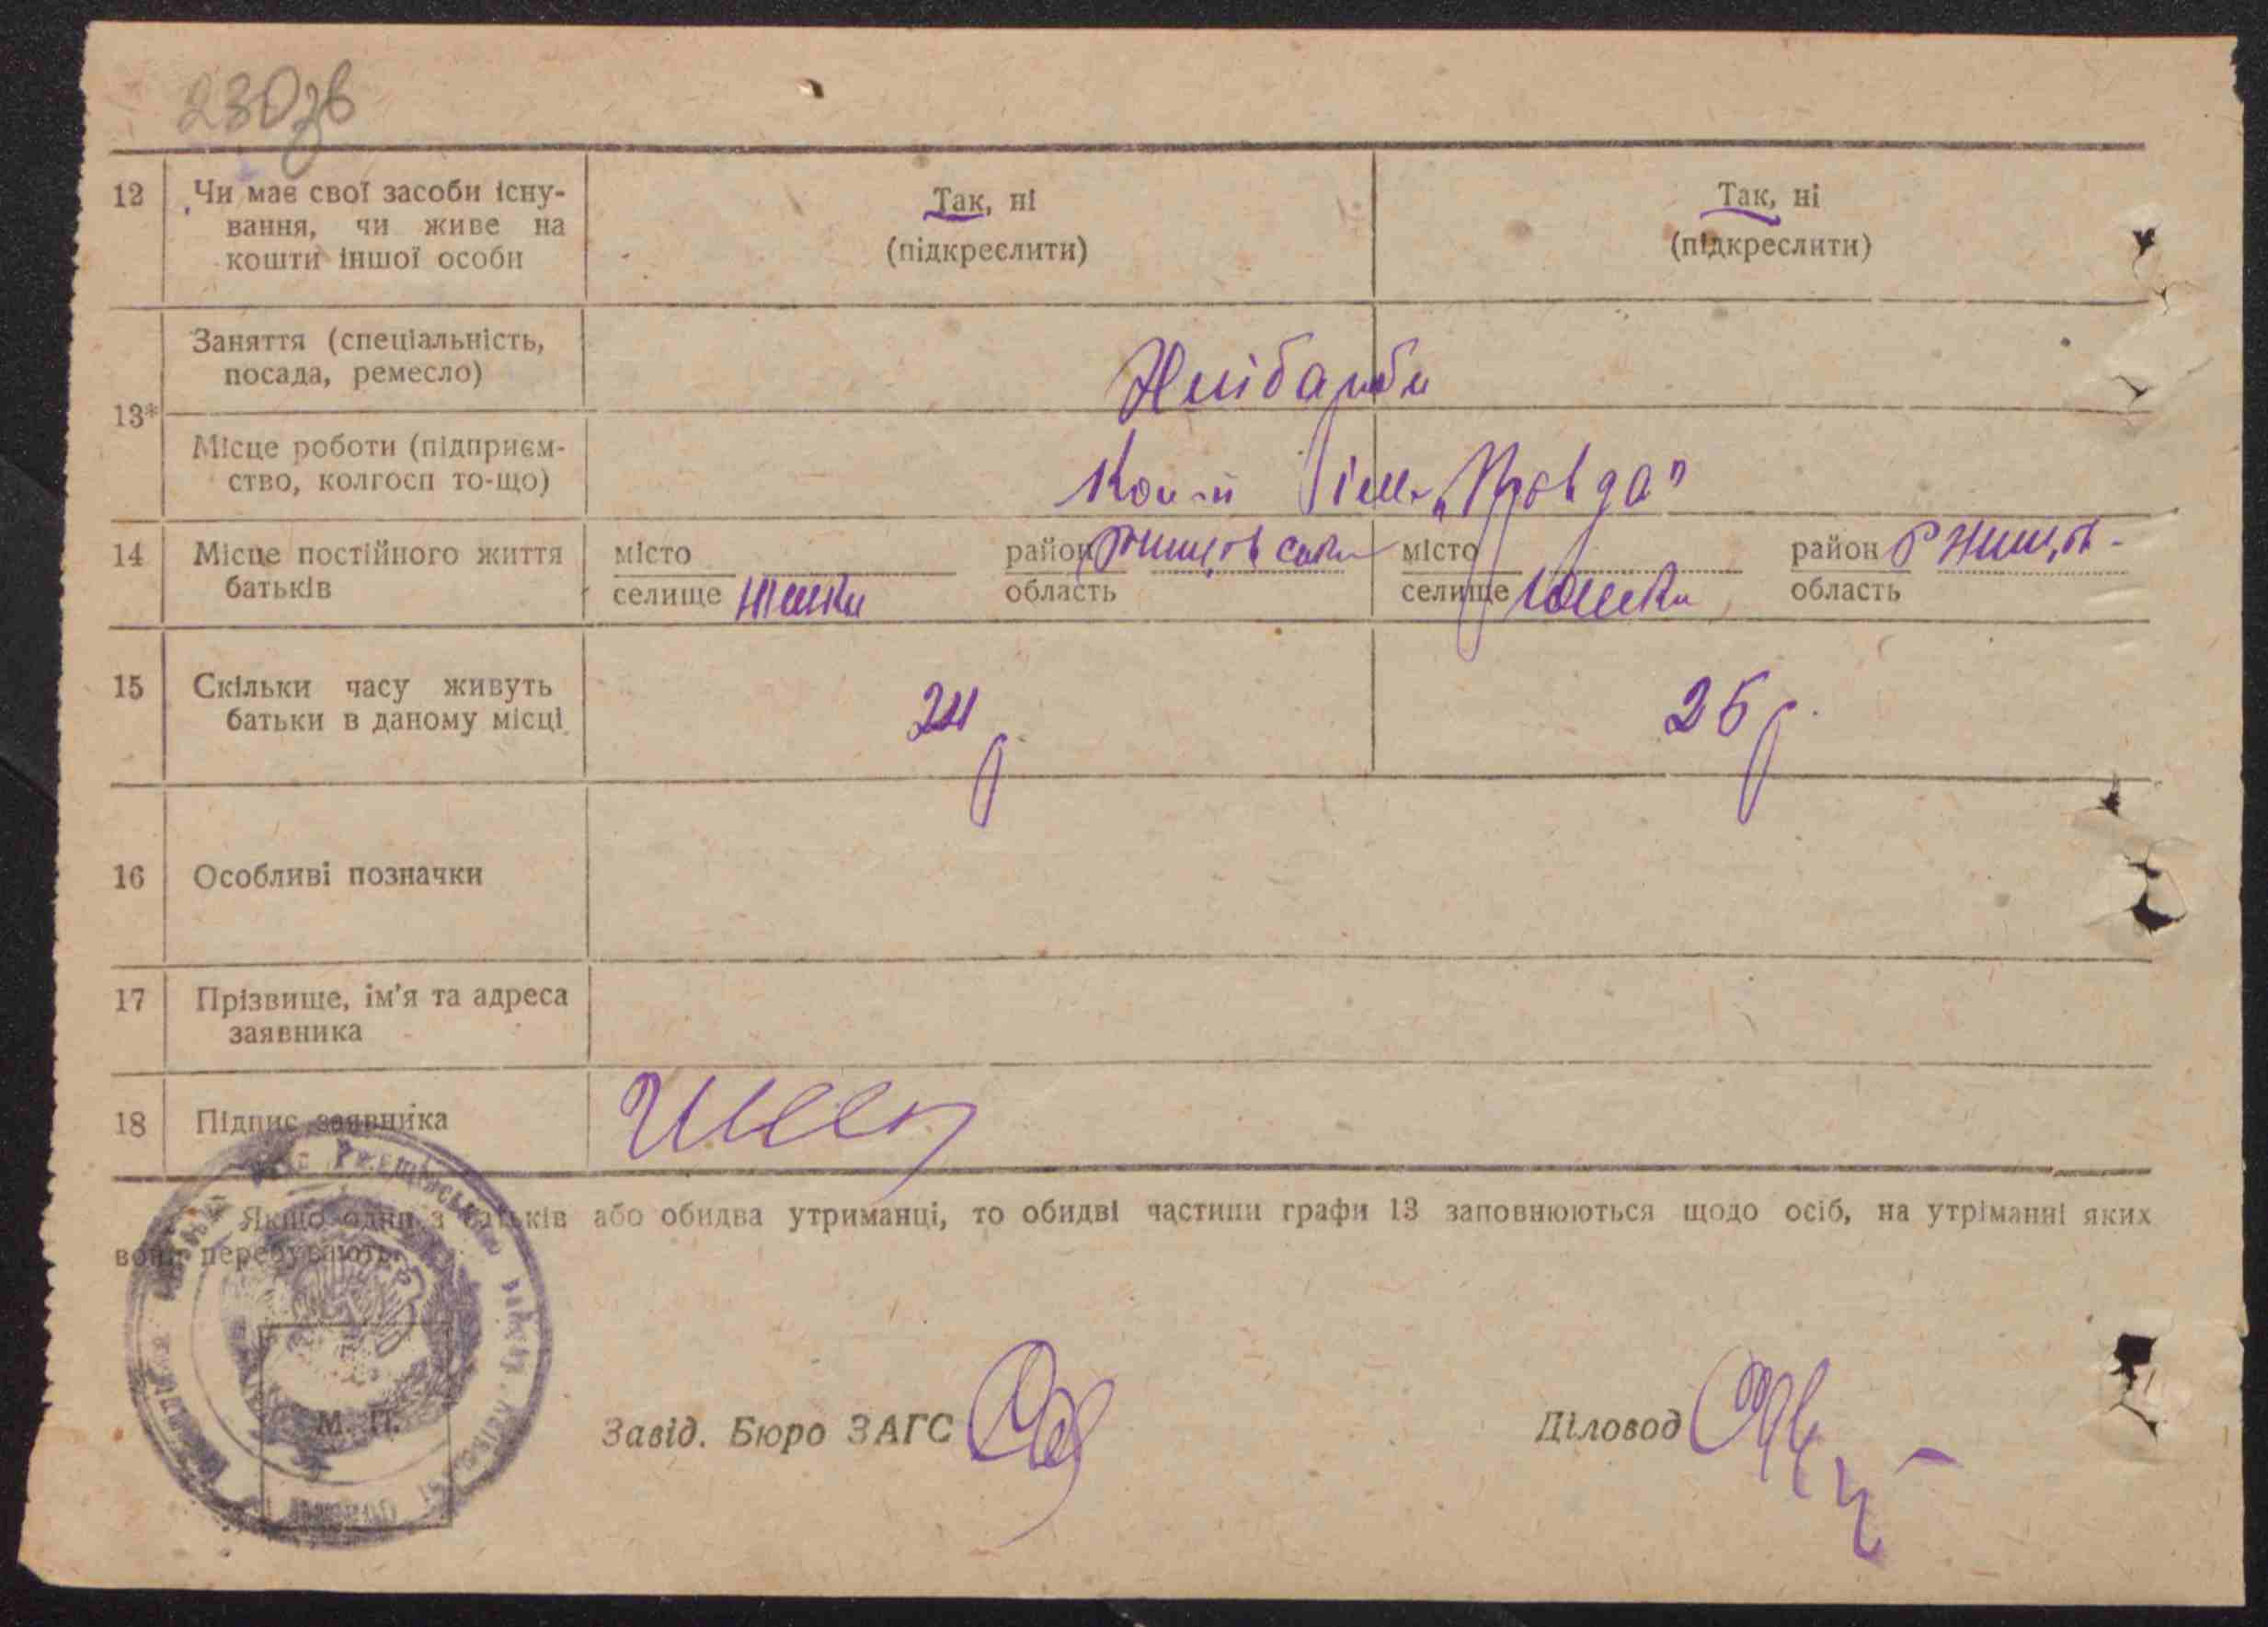 230зв
12 Чи має свої засоби існу-
вання, чи живе на
кошти іншої особи
Так, ні
(підкреслити)
Так, ні
(підкреслити)
13*
Заняття (спеціальність,
посада, ремесло)
Хлібороби
Місце роботи (підприєм-
ство, колгосп то-що)
"Правда"
14 Місце постійного життя
батьків
місто
селище
район
область
місто
селище
район Ржищів-
область
15 Скільки часу живуть
батьки в даному місці
24 р
26 р.
16 Особливі позначки
17 Прізвище, ім'я та адреса
заявника
18 Підпис заявника
Якщо один з батьків або обидва утриманці, то обидві частини графи 13 заповнюються щодо осіб, на утріманні яких
вони перебувають.
М. П.
Завід. Бюро ЗАГС
Діловод